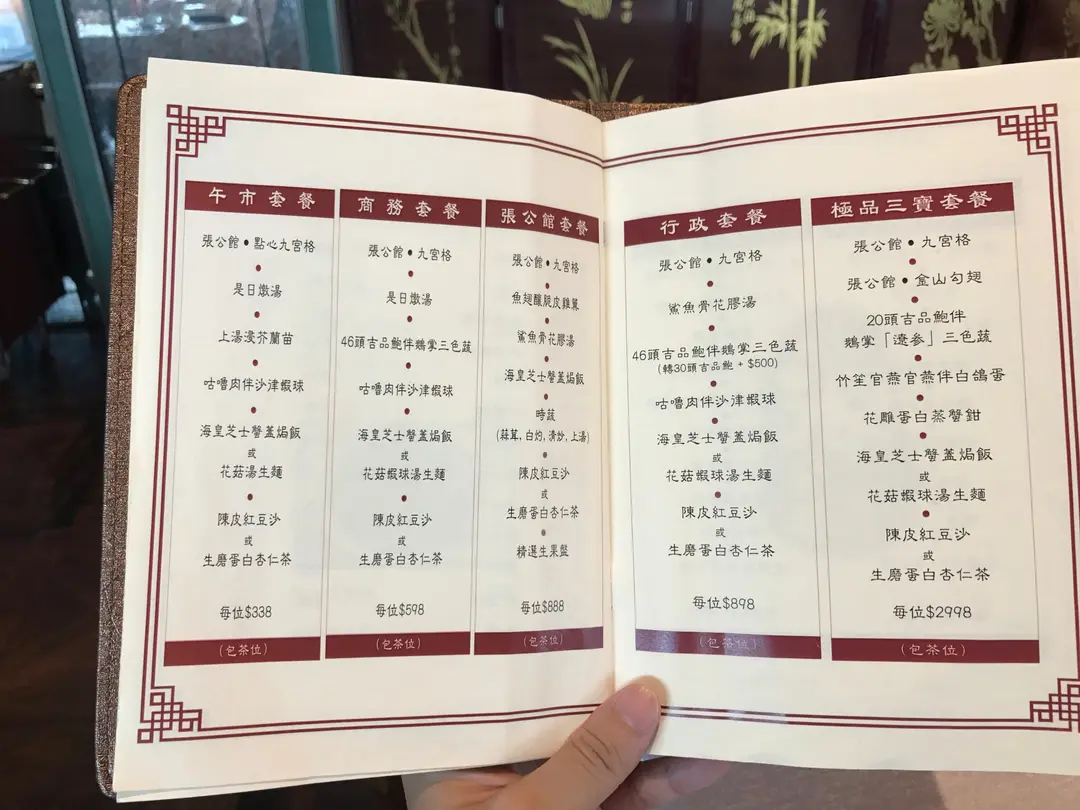 午市套餐
張公館•點心九宮格
是日燉湯
上湯浸芥蘭苗
咕嚕肉伴沙津蝦球
海皇芝士蟹蓋焗飯
或
花菇湯生麵
陳皮紅豆沙
或
生磨蛋白杏仁茶
每位$338
(包茶位)
商務套餐
張公館•九宮格
是日燉湯
46頭吉品鮑伴鵝掌三色蔬
咕嚕肉伴沙津蝦球
海皇芝士蟹蓋焗飯
或
花菇蝦球湯生麵
陳皮紅豆沙
或
生磨蛋白杏仁茶
每位$598
(包茶位)
張公館套餐
張公館•九宮格
魚翅釀脆皮雞翼
鯊魚骨花膠湯
海皇芝士蟹蓋焗飯
時蔬
(蒜茸, 白灼, 清炒, 上湯)
陳皮紅豆沙
或
生磨蛋白杏仁茶
精選生果盤
每位$888
(包茶位)
行政套餐
張公館•九宮格
鯊魚骨花膠湯
46頭吉品鮑伴鵝掌三色蔬
(轉30頭吉品鮑 + $500)
咕嚕肉伴沙津蝦球
海皇芝士蟹蓋焗飯
或
花菇蝦球湯生麵
陳皮紅豆沙
或
生磨蛋白杏仁茶
每位$898
(包茶位)
極品三寶套餐
張公館•九宮格
張公館•金山勾翅
20頭吉品鮑伴
鵝掌「遼参」三色蔬
竹笙官燕官燕伴白鴿蛋
花雕蛋白蒸蟹鉗
海皇芝士蟹蓋焗飯
或
花菇蝦球湯生麵
陳皮紅豆沙
或
生磨蛋白杏仁茶
每位$2998
(包茶位)